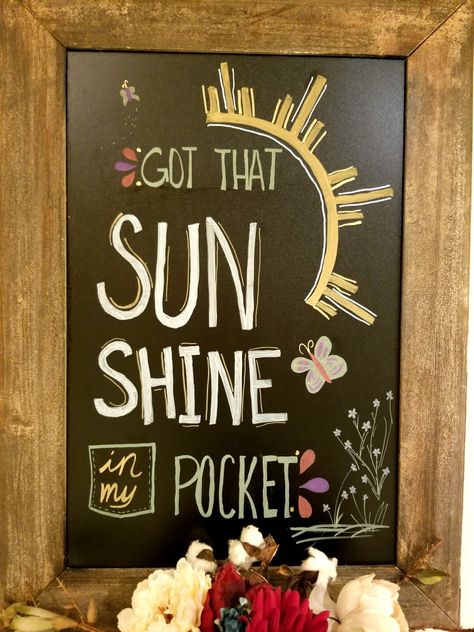 GOT THAT
SUN
SHINE
in
my POCKET